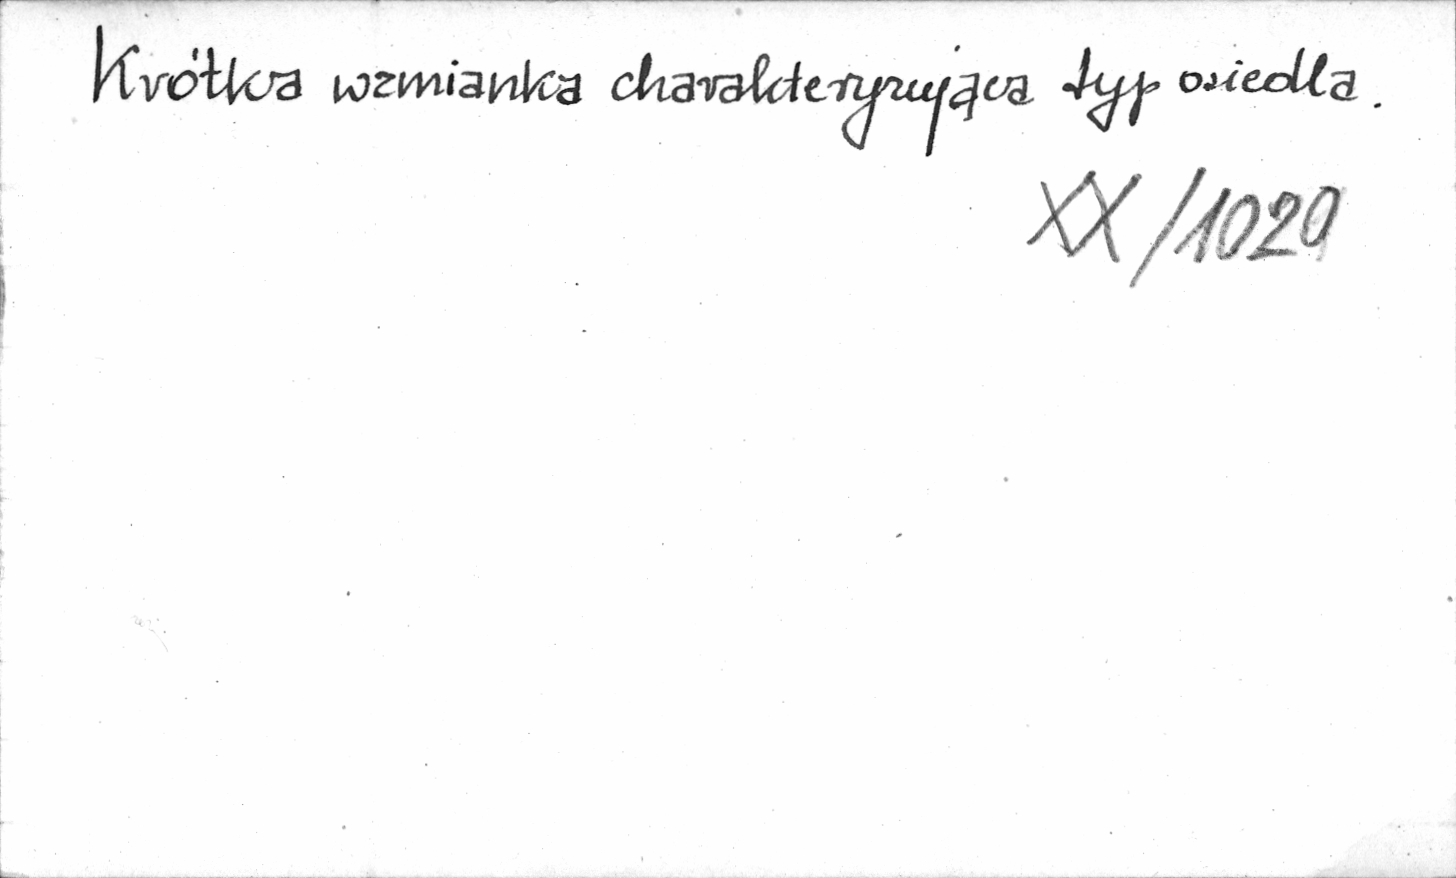 Krótka wzmianka charakteryzująca typ osiedla.
XX/1029